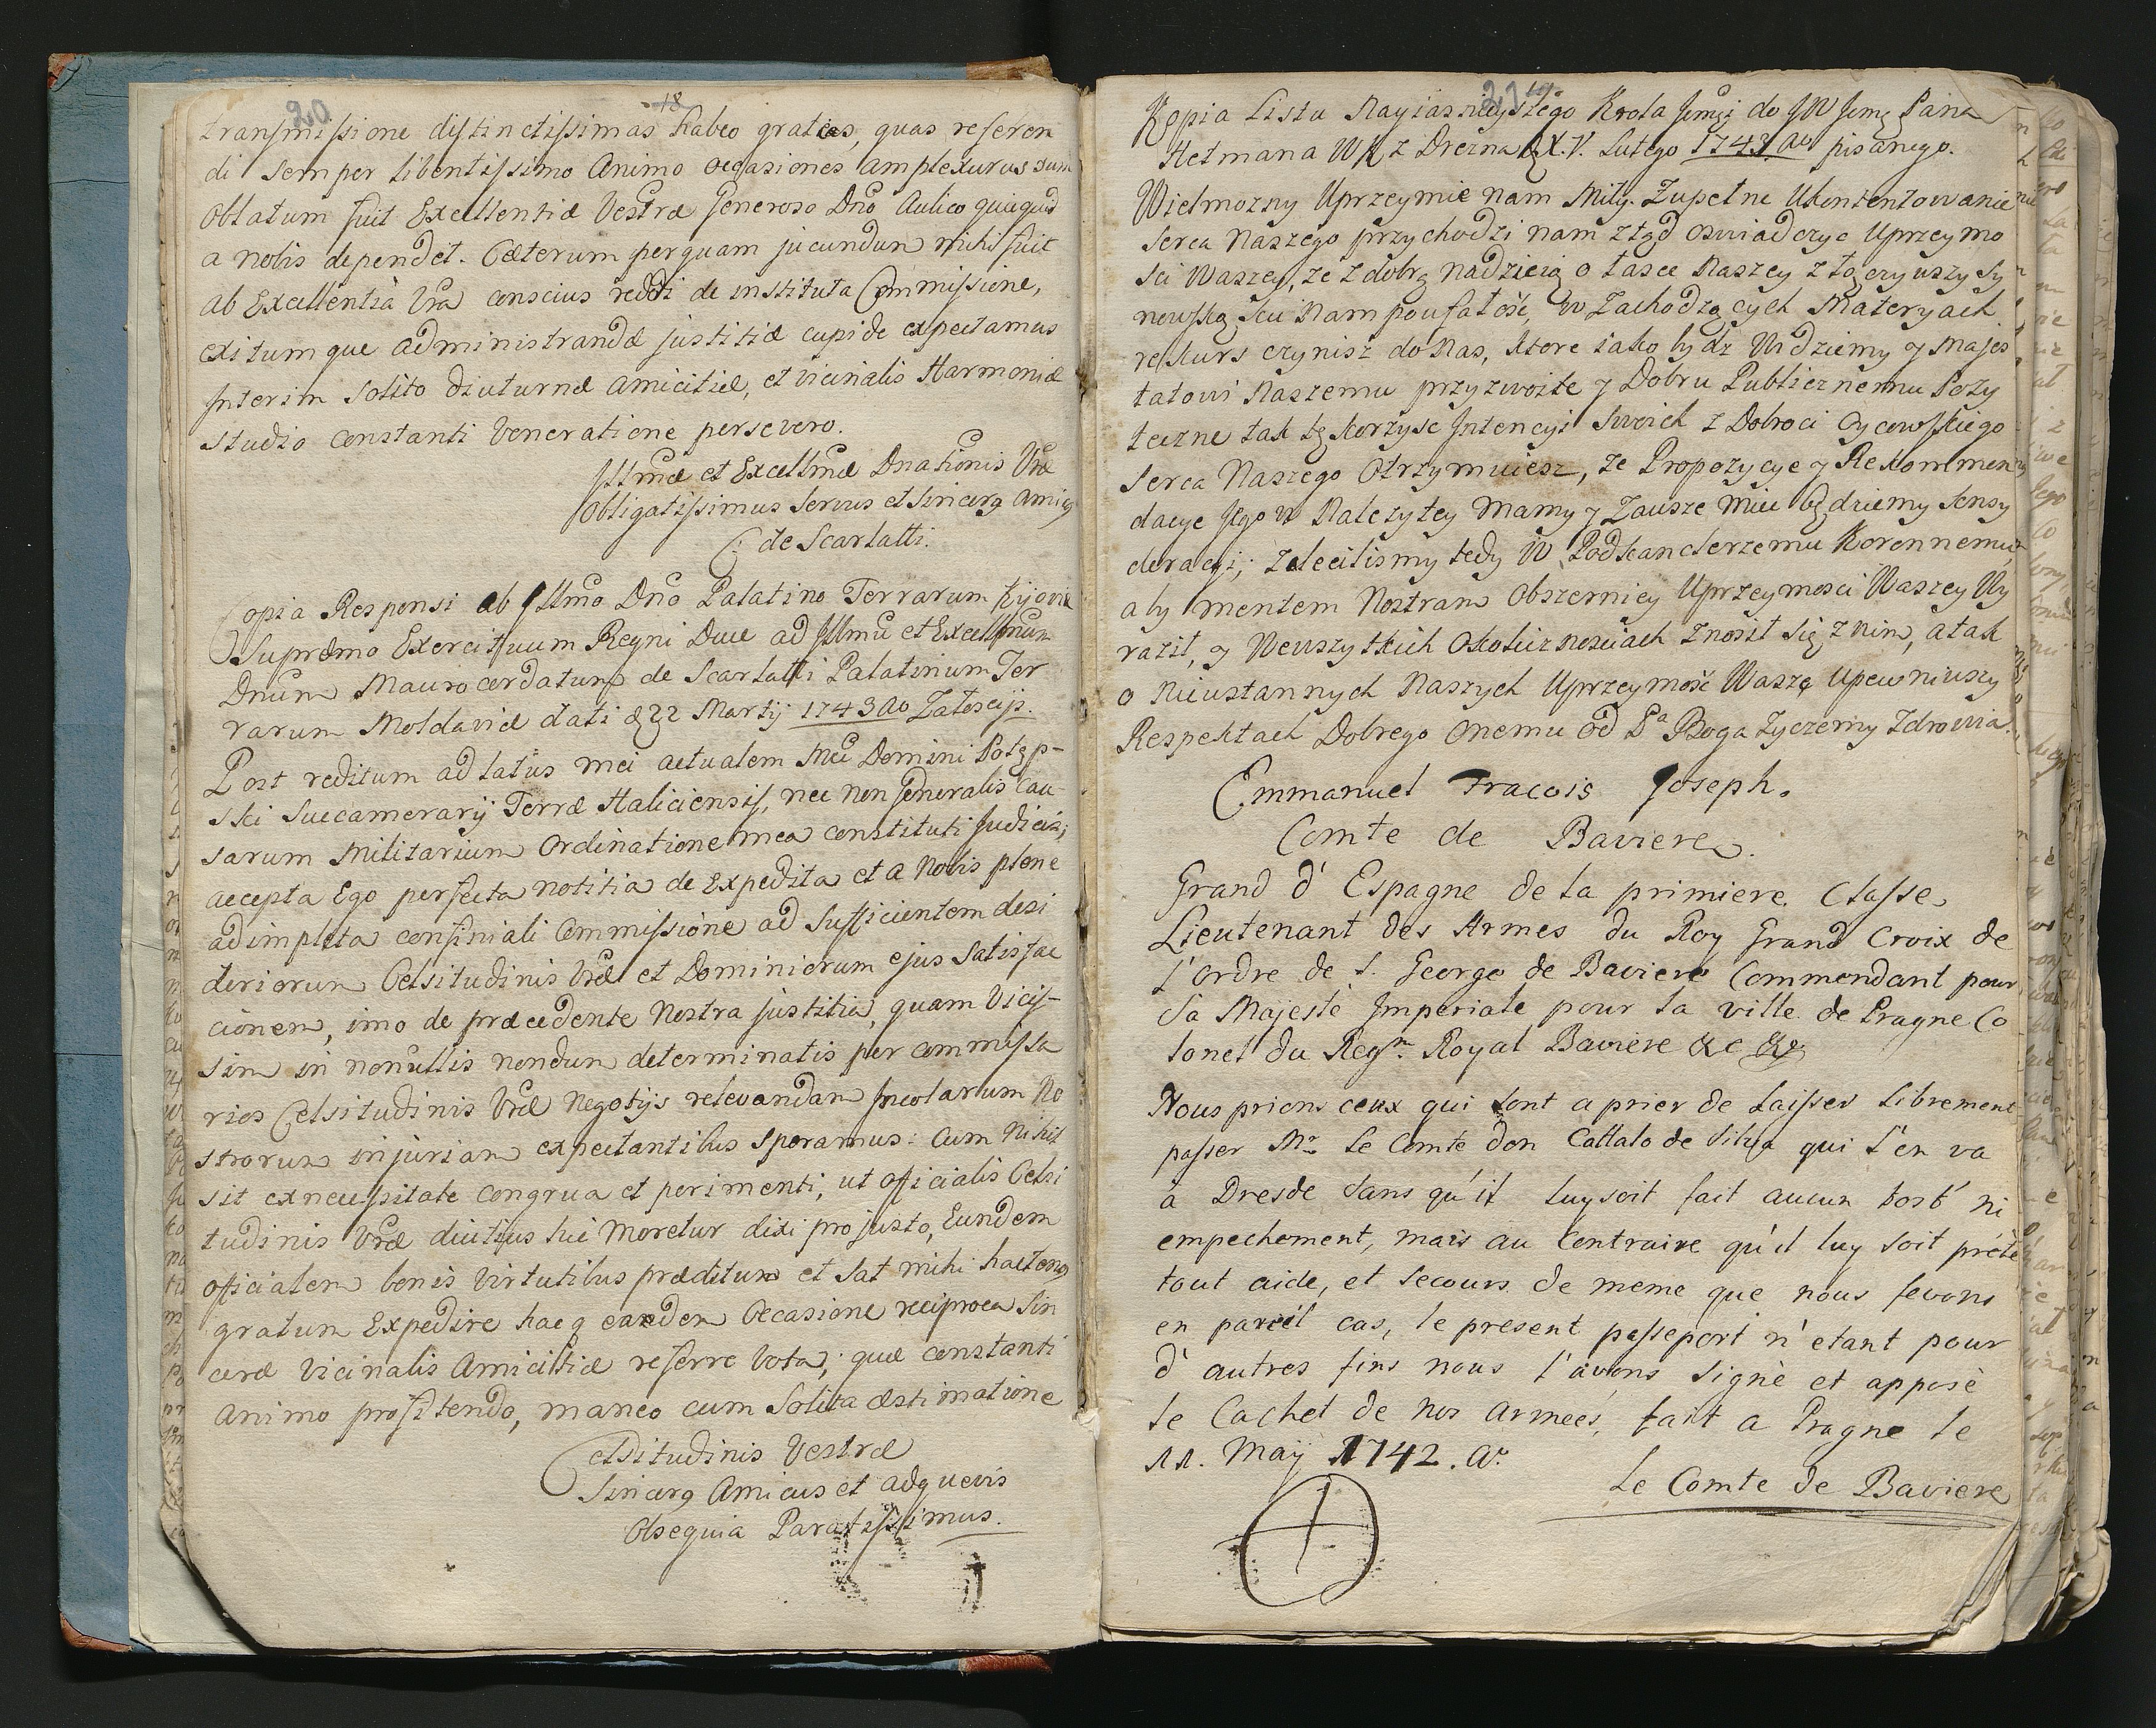 20
18
transmissione distinctissimas habeo gratias, quas referen
di semper libentissimo Animo occasiones amplexurus sum
Oblatum fuit Excellentiæ Vestræ Generoso Dno Aulico quicquid
a nobis dependet. Cæterum perquam jucundum mihi fuit
ab Excellentiâ Vra conscius reddi de instituta Commissione,
exitumque administrandæ justitiæ cupide expectamus
Interim solito diuturnæ amicitiæ, et vicinalis Harmoniæ
studio constanti Veneratione persevero.
Illmæ et Excellmæ Dnationis Vræ
Obligatissimus Servus et sincerq Amicq
C: de Scarlatti.
Copia Responsi ab Illmo Dno Palatino Terrarum Kijoviæ
Supræmo Exercituum Regni Duce ad Illmu et Excellmum
Dnum Maurocordatum de Scarlatti Palatinum Ter
rarum Moldaviæ dati d 22 Martij 1743 Ao Zatoscijs.
Post reditum ad latus mei actualem Mci Domini Potęp-
ski Succamerarij Terræ Haliciensis, nec non Generalis Cau-
sarum Militarium Ordinatione mea constituti Judicis;
accepta Ego perfecta notitia de Expedita et a Nobis plene
adimpleta confiniali Commissione ad Sufficientem desi
deriorum Celsitudinis Vræ et Dominiorum ejus Satisfac
cionem, imo de præcedente Nostra justitia, quam Vicis-
sim in nonullis nondum determinatis per commissa
rios Celsitudinis Vræ Negotijs relevandam Incolarum No
strorum injuriam expectantibus Speramus: Cum Nihil
sit ex necessitate congrua et perimenti, ut officialis Celsi
tudinis Vræ diutius hic moretur dixi pro justo, Eundem
officialem bonis Virtutibus præditum et Sat mihi hactenq
gratum Expedire hacq eadem Occasione reciproca Sin
ceræ Vicinalis Amicitiæ referre Vota; quæ constanti
Animo profitendo, maneo cum Solita æstimatione
Celsitudinis Vestræ
Sincerq Amicus et ad quevis
Obsequia Paratissimus.
21
Kopia Listu Nayiasnieyszego Krola Jemgi do JW Jemg Pana
Hetmana WK z Drezna d X.V. Lutego 1743 Ao pisanego.
Wielmozny Uprzeymie nam Miły. Zupełne Ukontentowanie
serca Naszego przychodzi nam ztąd oswiadczyc Uprzeymo
sci Waszey, ze z dobrą nadzieią o łasce Naszey złączywszy Sy
nowską scu Nam poufałość, w Zachodzących Materyach
rekurs czynisz do Nas, ktore iako bydz Widziemy y Majes
tatowi Naszemu przyzwoite y Dobru Publicznemu Poży
teczne tak tę korzysc Intencyi Swoich z Dobroci Oycowskiego
serca Naszego Otrzymuiesz, ze Propozycye y Rekommen
dacye Jego w Nalezytey Mamy y Zawsze Miec będziemy Consy
deracyi; zalecilismy tedy W. Podkanclerzemu Koronnemu,
aby mentem Nostram Obszerniey Uprzeymosci Waszey Wy
raził, y Wewszytkich Okolicznosciach Znosił się z nim, a tak
o Nieustannych Naszych Uprzeymość Waszę Upewniwszy
Respektach Dobrego Onemu Od Pa Boga Zyczemy Zdrowia.
Emmanuel Fracois Joseph.
Comte de Baviere.
Grand d' Espagne de la primiere. Classe
Lieutenant des Armes du Roy Grand Croix de
l'ordre de S. George de Baviere Commendant pour
Sa Majesté Imperiale pour la ville de Pragne Co
lonel du Regm. Royal Baviere &c &c
Nous prions ceux qui sont a prier de Laisser Librement
passer Mr. le Comte Don Cattalo de Silva qui s'en va
à Dresde sans qu'il luy soit fait aucun tort ni
empechement, mais au Contraire qu'il luy soit prèté
tout aide, et secours de meme que nous ferons
en pareil cas, le present passeport n'etant pour
d'autres fins nous l'avons Signè et apposè
le Cachet de nos armees, fait a Pragne le
11. Maÿ 1742. Ao
Le Comte de Baviere